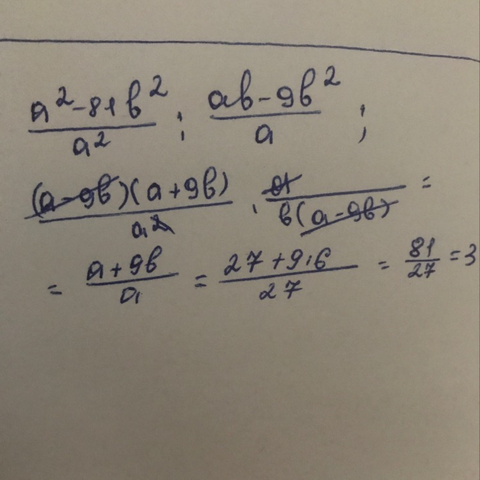 (a² - 81b²)/a² ; (ab - 9b²)/a ;
((a - 9b)(a + 9b))/a² · a/(b(a - 9b)) =
= (a + 9b)/a = (27 + 9·6)/27 = 81/27 = 3